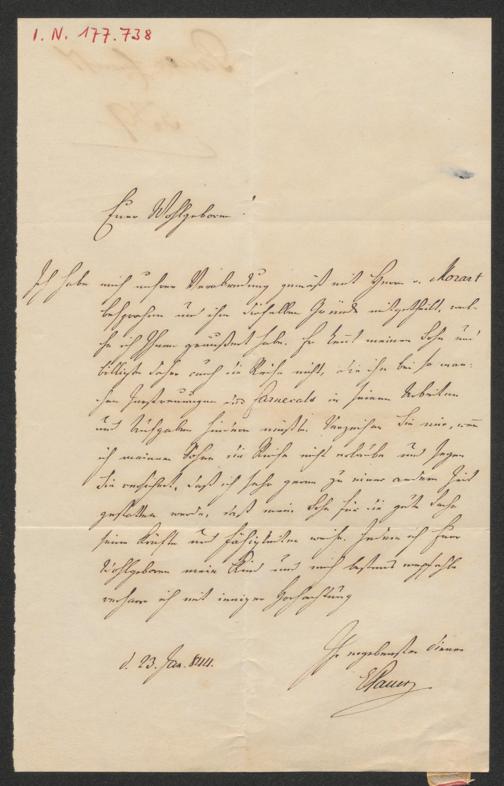 I. N. 177.738
Euer Wohlgeboren!
Ich habe mich unsrer Verabredung gemäß mit Herrn v. Mozart
besprochen und ihm dieselben Gründe mitgetheilt, wel-
che ich Ihnen geäußert habe. Er kennt meinen Sohn und
billigte daher auch die Reise nicht, die ihn bei so man-
chen Zerstreuungen des Carnevals in seinen Arbeiten
und Aufgaben hindern müßte. Verzeihen Sie mir, wenn
ich meinem Sohne die Reise nicht erlaube und seyen
Sie versichert, daß ich sehr gerne zu einer andern Zeit
gestatten werde, daß mein Sohn für die gute Sache
seine Kräfte und Fähigkeiten weihe. Indem ich Euer
Wohlgeboren mein Kind und mich bestens empfehle
verharre ich mit inniger Hochachtung
d. 23. Jan. 844.
Ihr ergebenster Diener
EPauer